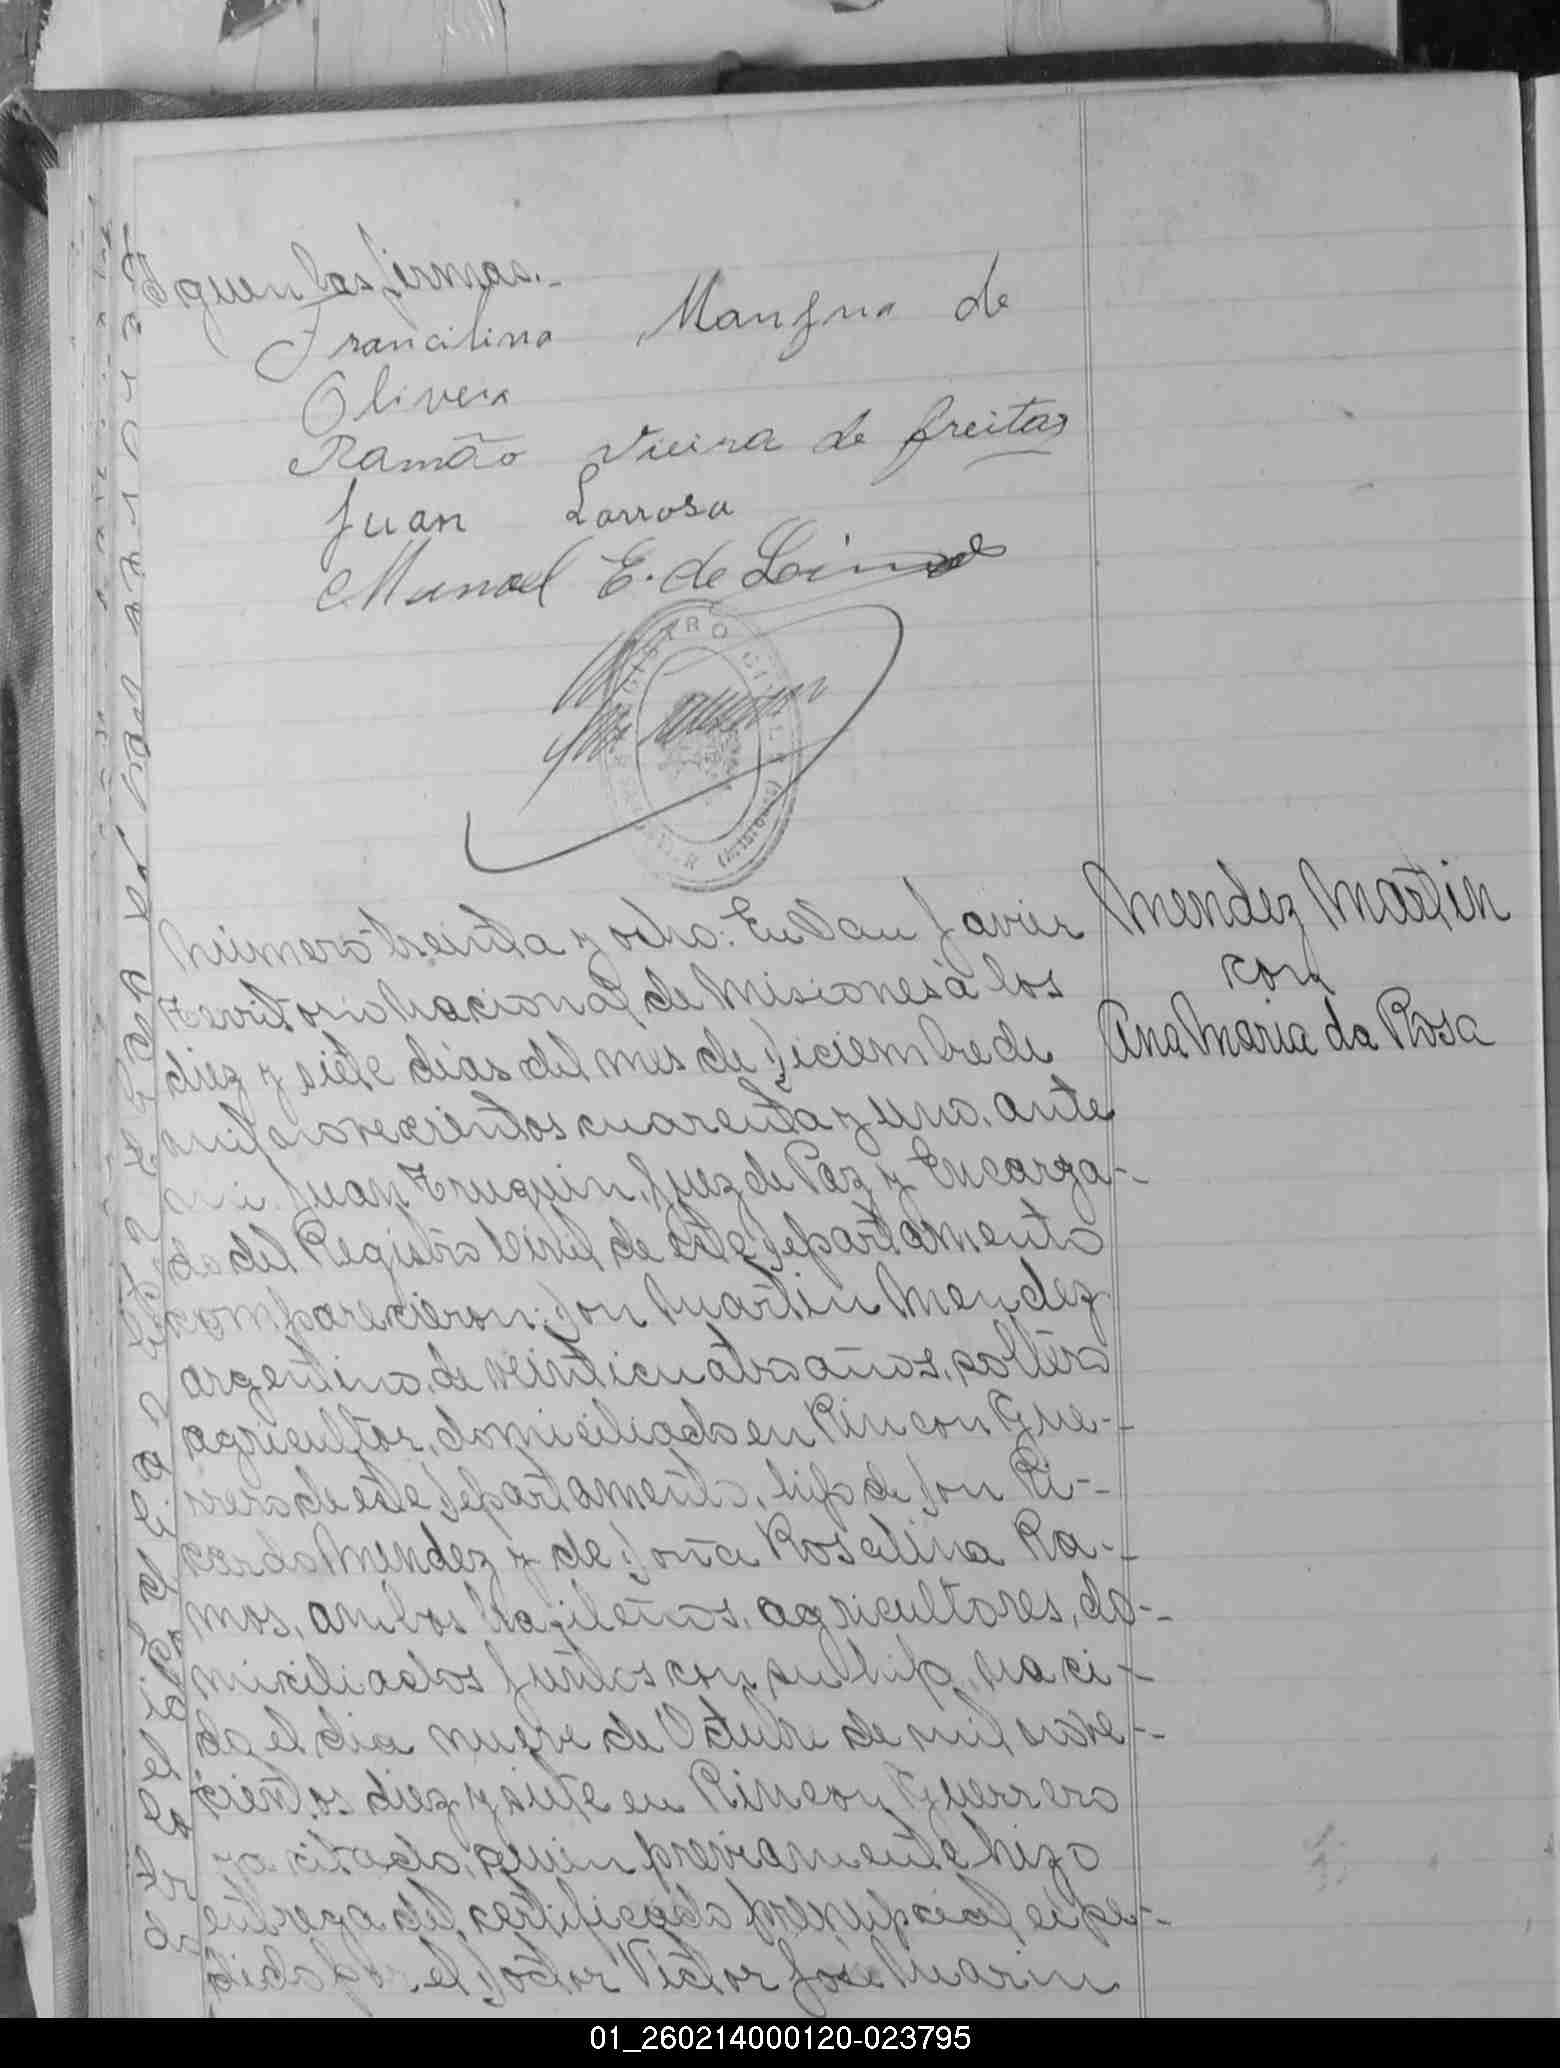 Siguen las firmas.-
Francilina Mangna de
Olivera
Ramão Vieira de freitas
Juan Larrosa
Manoel E. de Lima
REGISTRO CIVIL
SAN JAVIER (Misiones)
Número treinta y ocho: En San Javier
Territorio Nacional de Misiones a los
diez y siete dias del mes de Diciembre de
mil novecientos cuarenta y uno, ante
mi Juan Truquin, Juez de Paz y Encarga-
do del Registro Civil de este Departamento
comparecieron: Don Martin Mendez
argentino, de veinticuatro años, soltero
agricultor, domiciliado en Rincon Gue-
rrero de este Departamento, hijo de Don Ri-
cardo Mendez y de Doña Rosalina Ra-
mos, ambos brasileños, agricultores, do-
miciliados juntos con su hijo, naci-
do el dia nueve de Octubre de mil nove-
cientos diez y siete en Rincon Guerrero
ya citado, quien previamente hizo
entrega del certificado prenupcial expe-
dido por el Doctor Victor José Marin
Mendez Martin
con
Ana Maria da Rosa
01_260214000120-023795